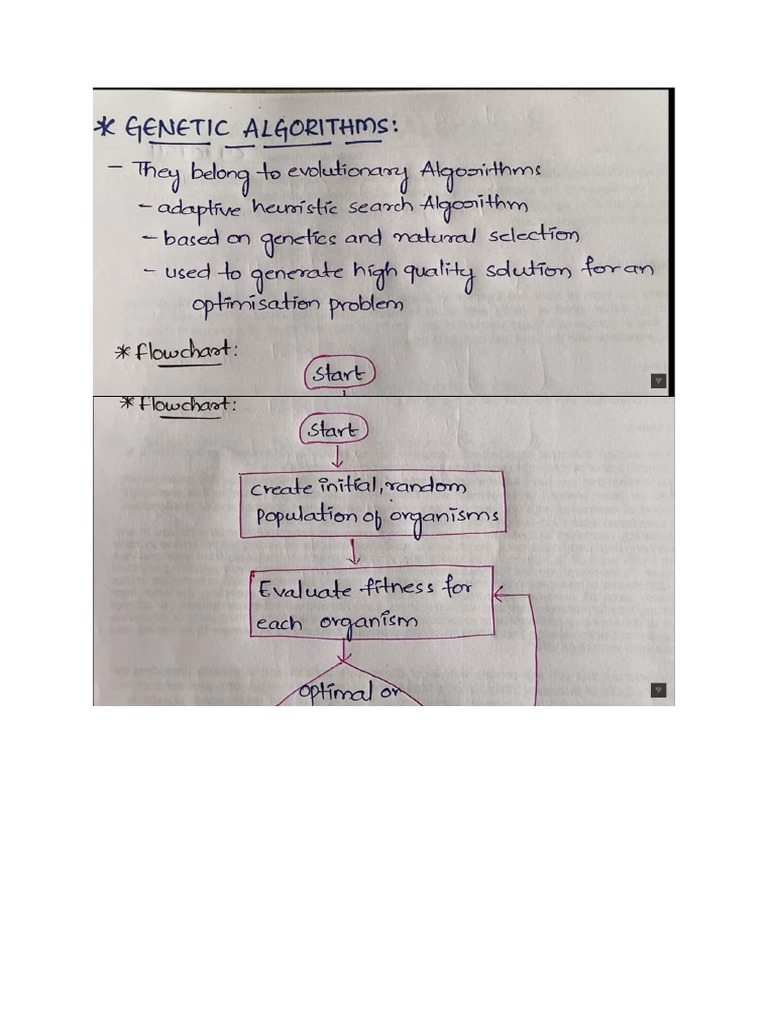 * GENETIC ALGORITHMS:
- They belong to evolutionary Algorithms
- adaptive heuristic search Algorithm
- based on genetics and natural selection
- used to generate high quality solution for an
optimisation problem
* Flowchart:
Start
* Flowchart:
Start
create initial, random
population of organisms
Evaluate fitness for
each organism
optimal or